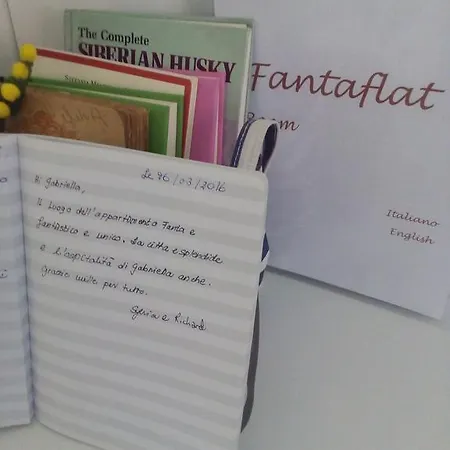 The Complete
SIBERIAN HUSKY
Fantaflat
Italiano
English
Le 26/03/2016
Hi Gabriella,
Il luogo dell'appartamento Fanta e
fantistico e unico. La citta e splendide
e l'ospitalità di Gabriella anche.
Grazie mille per tutto.
e Richard